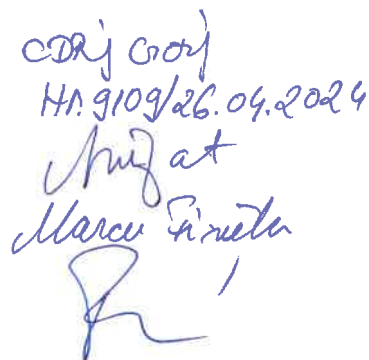 CDRJ Gorj
Nr. 9109/26.04.2024
Avizat
Marcu